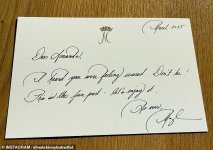 March 2025
Dear Amanda,
I heard you were feeling scared. Don't be!
This is the fun part - let's enjoy it
As ever,
© INSTAGRAM /